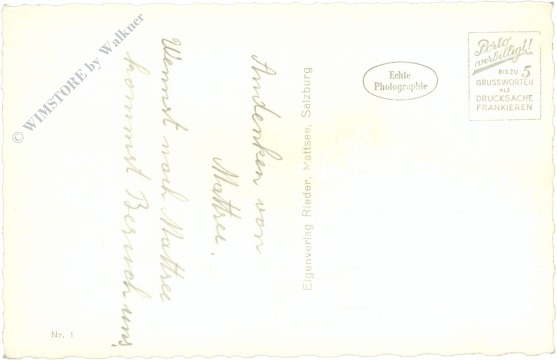 © WIMSTORE by Walkner
Andenken von
Mattsee.
Wennst nach Mattsee
kommst Besuch uns!
Eigenverlag Rieder, Mattsee, Salzburg
Echte
Photographie
Porto
verbilligt!
BIS ZU 5
GRUSSWORTEN
ALS
DRUCKSACHE
FRANKIEREN
Nr. 1